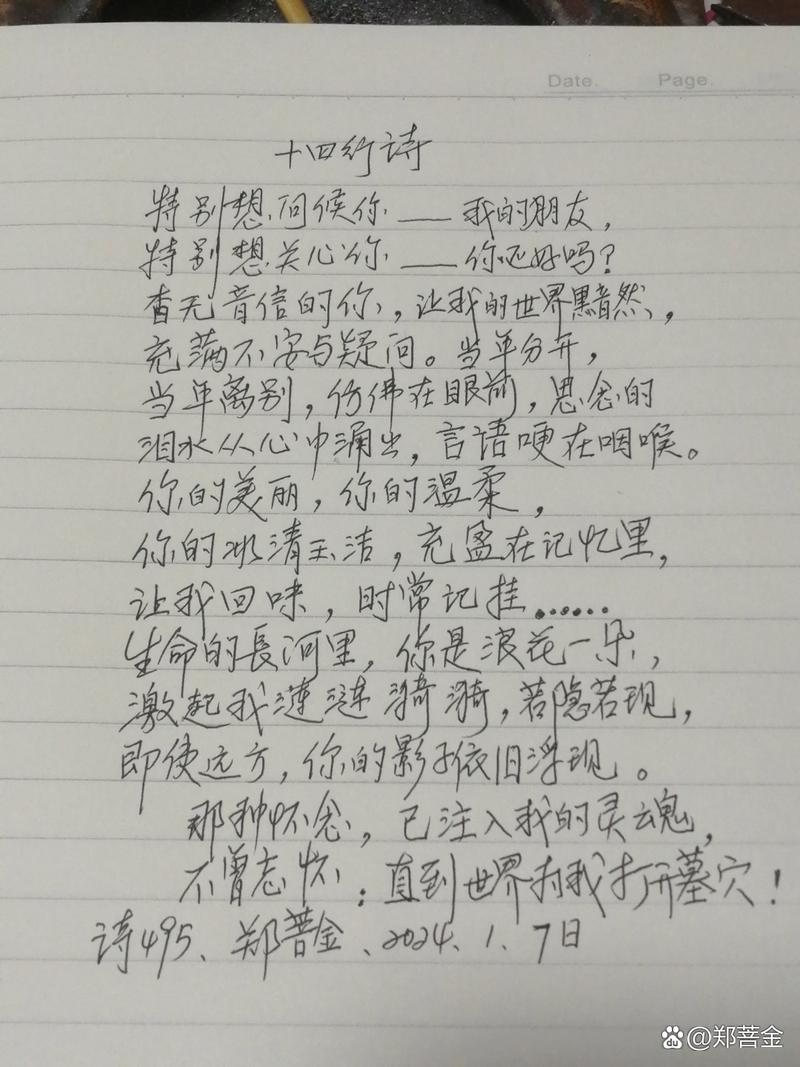 Date. Page.
十四行诗
特别想问候你——我的朋友,
特别想关心你——你还好吗?
杳无音信的你,让我的世界黯然,
充满不安与疑问。当年分开,
当年离别,仿佛在眼前,思念的
泪水从心中涌出,言语哽在咽喉。
你的美丽,你的温柔,
你的冰清玉洁,充盈在记忆里,
让我回味,时常记挂......
生命的長河里,你是浪花一朵,
激起我涟涟漪漪,若隐若现,
即使远方,你的影子依旧浮现。
那种怀念,已注入我的灵魂,
不曾忘怀:直到世界为我打开墓穴!
诗495、郑菩金、2024.1.7日
@郑菩金